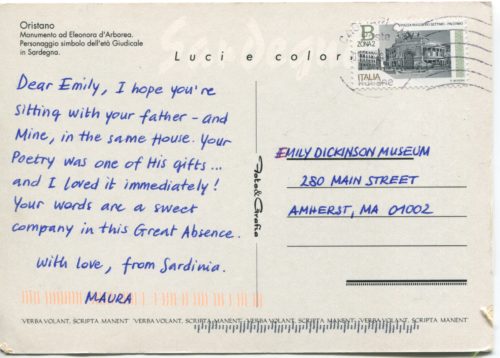 Oristano
Monumento ad Eleonora d'Arborea.
Personaggio simbolo dell'età Giudicale
in Sardegna.
Sardegna
Luci e colori
B
ZONA 2
PIAZZA RUGGERO SETTIMO - PALERMO
ITALIA
Dear Emily, I hope you're
sitting with your father - and
Mine, in the same House. Your
Poetry was one of His gifts...
and I loved it immediately!
Your words are a sweet
company in this Great Absence.
With love, from Sardinia.
MAURA
Foto&Grafia
EMILY DICKINSON MUSEUM
280 MAIN STREET
AMHERST, MA 01002
"VERBA VOLANT, SCRIPTA MANENT" "VERBA VOLANT, SCRIPTA MANENT" "VERBA VOLANT, SCRIPTA MANENT" "VERBA VOLANT, SCRIPTA MANENT"